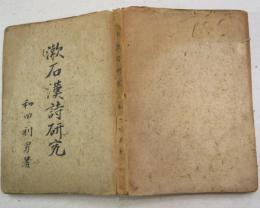 漱石漢詩研究
和田利男著